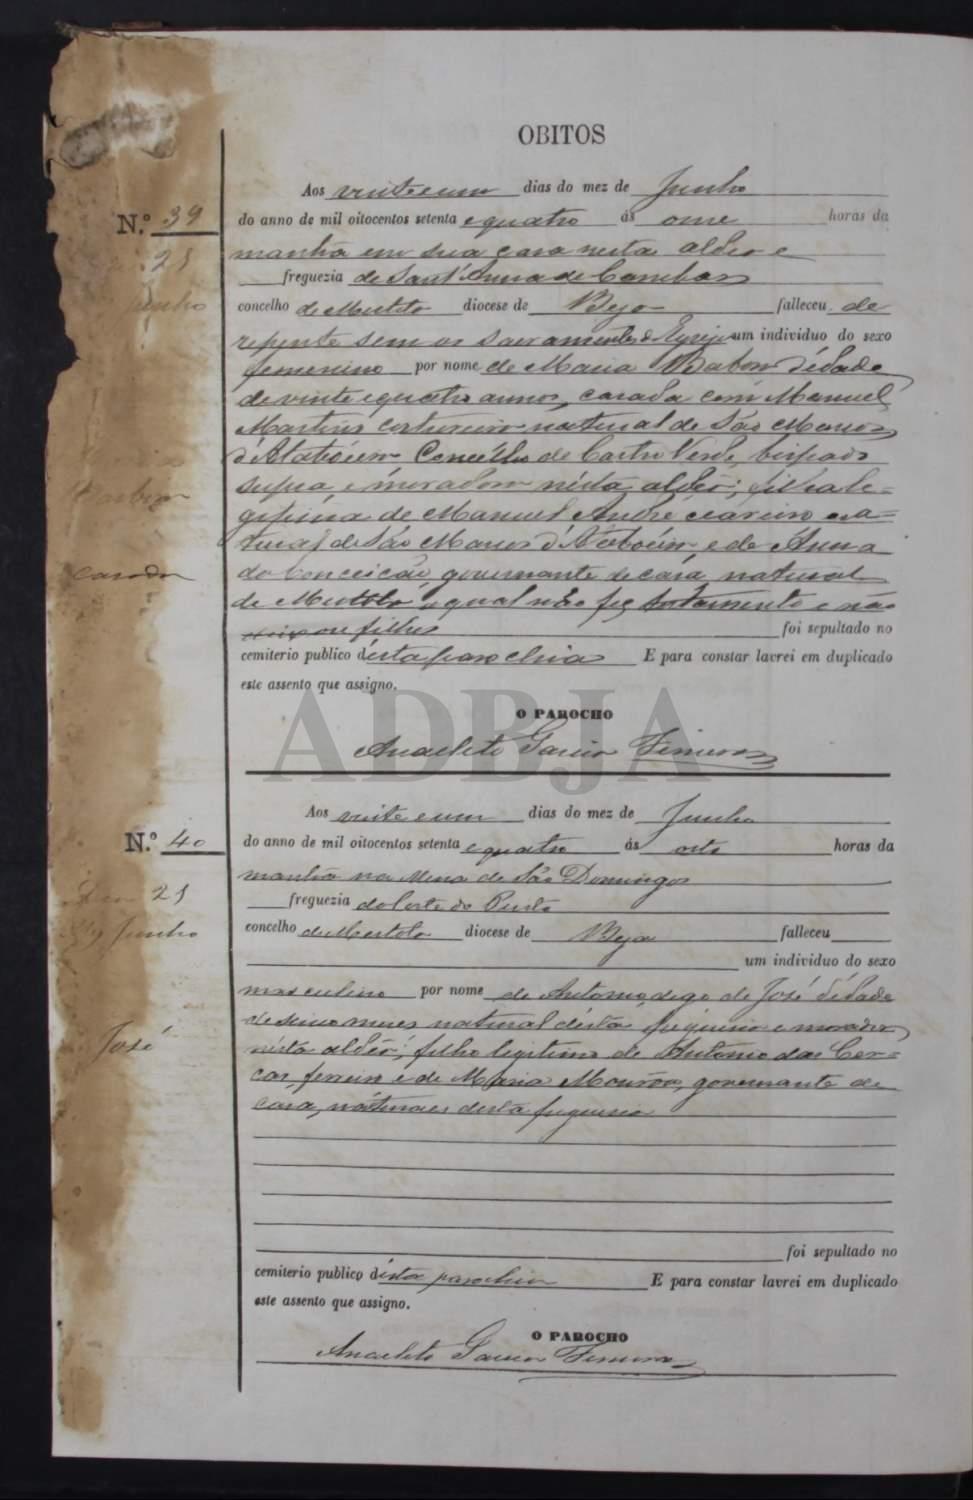 OBITOS
Aos vinte e um dias do mez de Junho
N.º 39
do anno de mil oitocentos setenta e quatro ás onse horas da
manhã em sua casa nesta aldeia e
21
freguezia de Sant'Anna de Cambas
Junho
concelho de Mertola diocese de Beja falleceu de
repente sem os sacramentos d'Egreja um individuo do sexo
femenino por nome de Maria d'idade
de vinte e quatro annos, casada com Manuel
Martins natural de São Marcos
d'Atabôeira Concelho de Castro Verde, bispado
supra, e morador nésta aldeia; filha le-
gitima de Manuel André na-
tural de São Marcos d'Atabôeira, e de Anna
casada
da Conceição, governante de casa, natural
de Mertola a qual não fez testamento e não
deixou filhos foi sepultado no
cemiterio publico d'ésta parochia E para constar lavrei em duplicado
este assento que assigno.
ADBJA
O PAROCHO
Anacleto Garcia
Aos vinte e um dias do mez de Junho
N.º 40
do anno de mil oitocentos setenta e quatro ás oito horas da
manhã na Mina de São Domingos
21
freguezia do Corte do Pinto
Junho
concelho de Mertola diocese de Beja falleceu
um individuo do sexo
masculino por nome de Antonio, digo de José d'idade
de mezes natural désta freguesia e morador
José
nésta aldeia; filho legitimo de Antonio das Cer-
cas, ferreiro e de Maria governante de
casa, naturaes desta freguesia
foi sepultado no
cemiterio publico d'ésta parochia E para constar lavrei em duplicado
este assento que assigno.
O PAROCHO
Anacleto Garcia